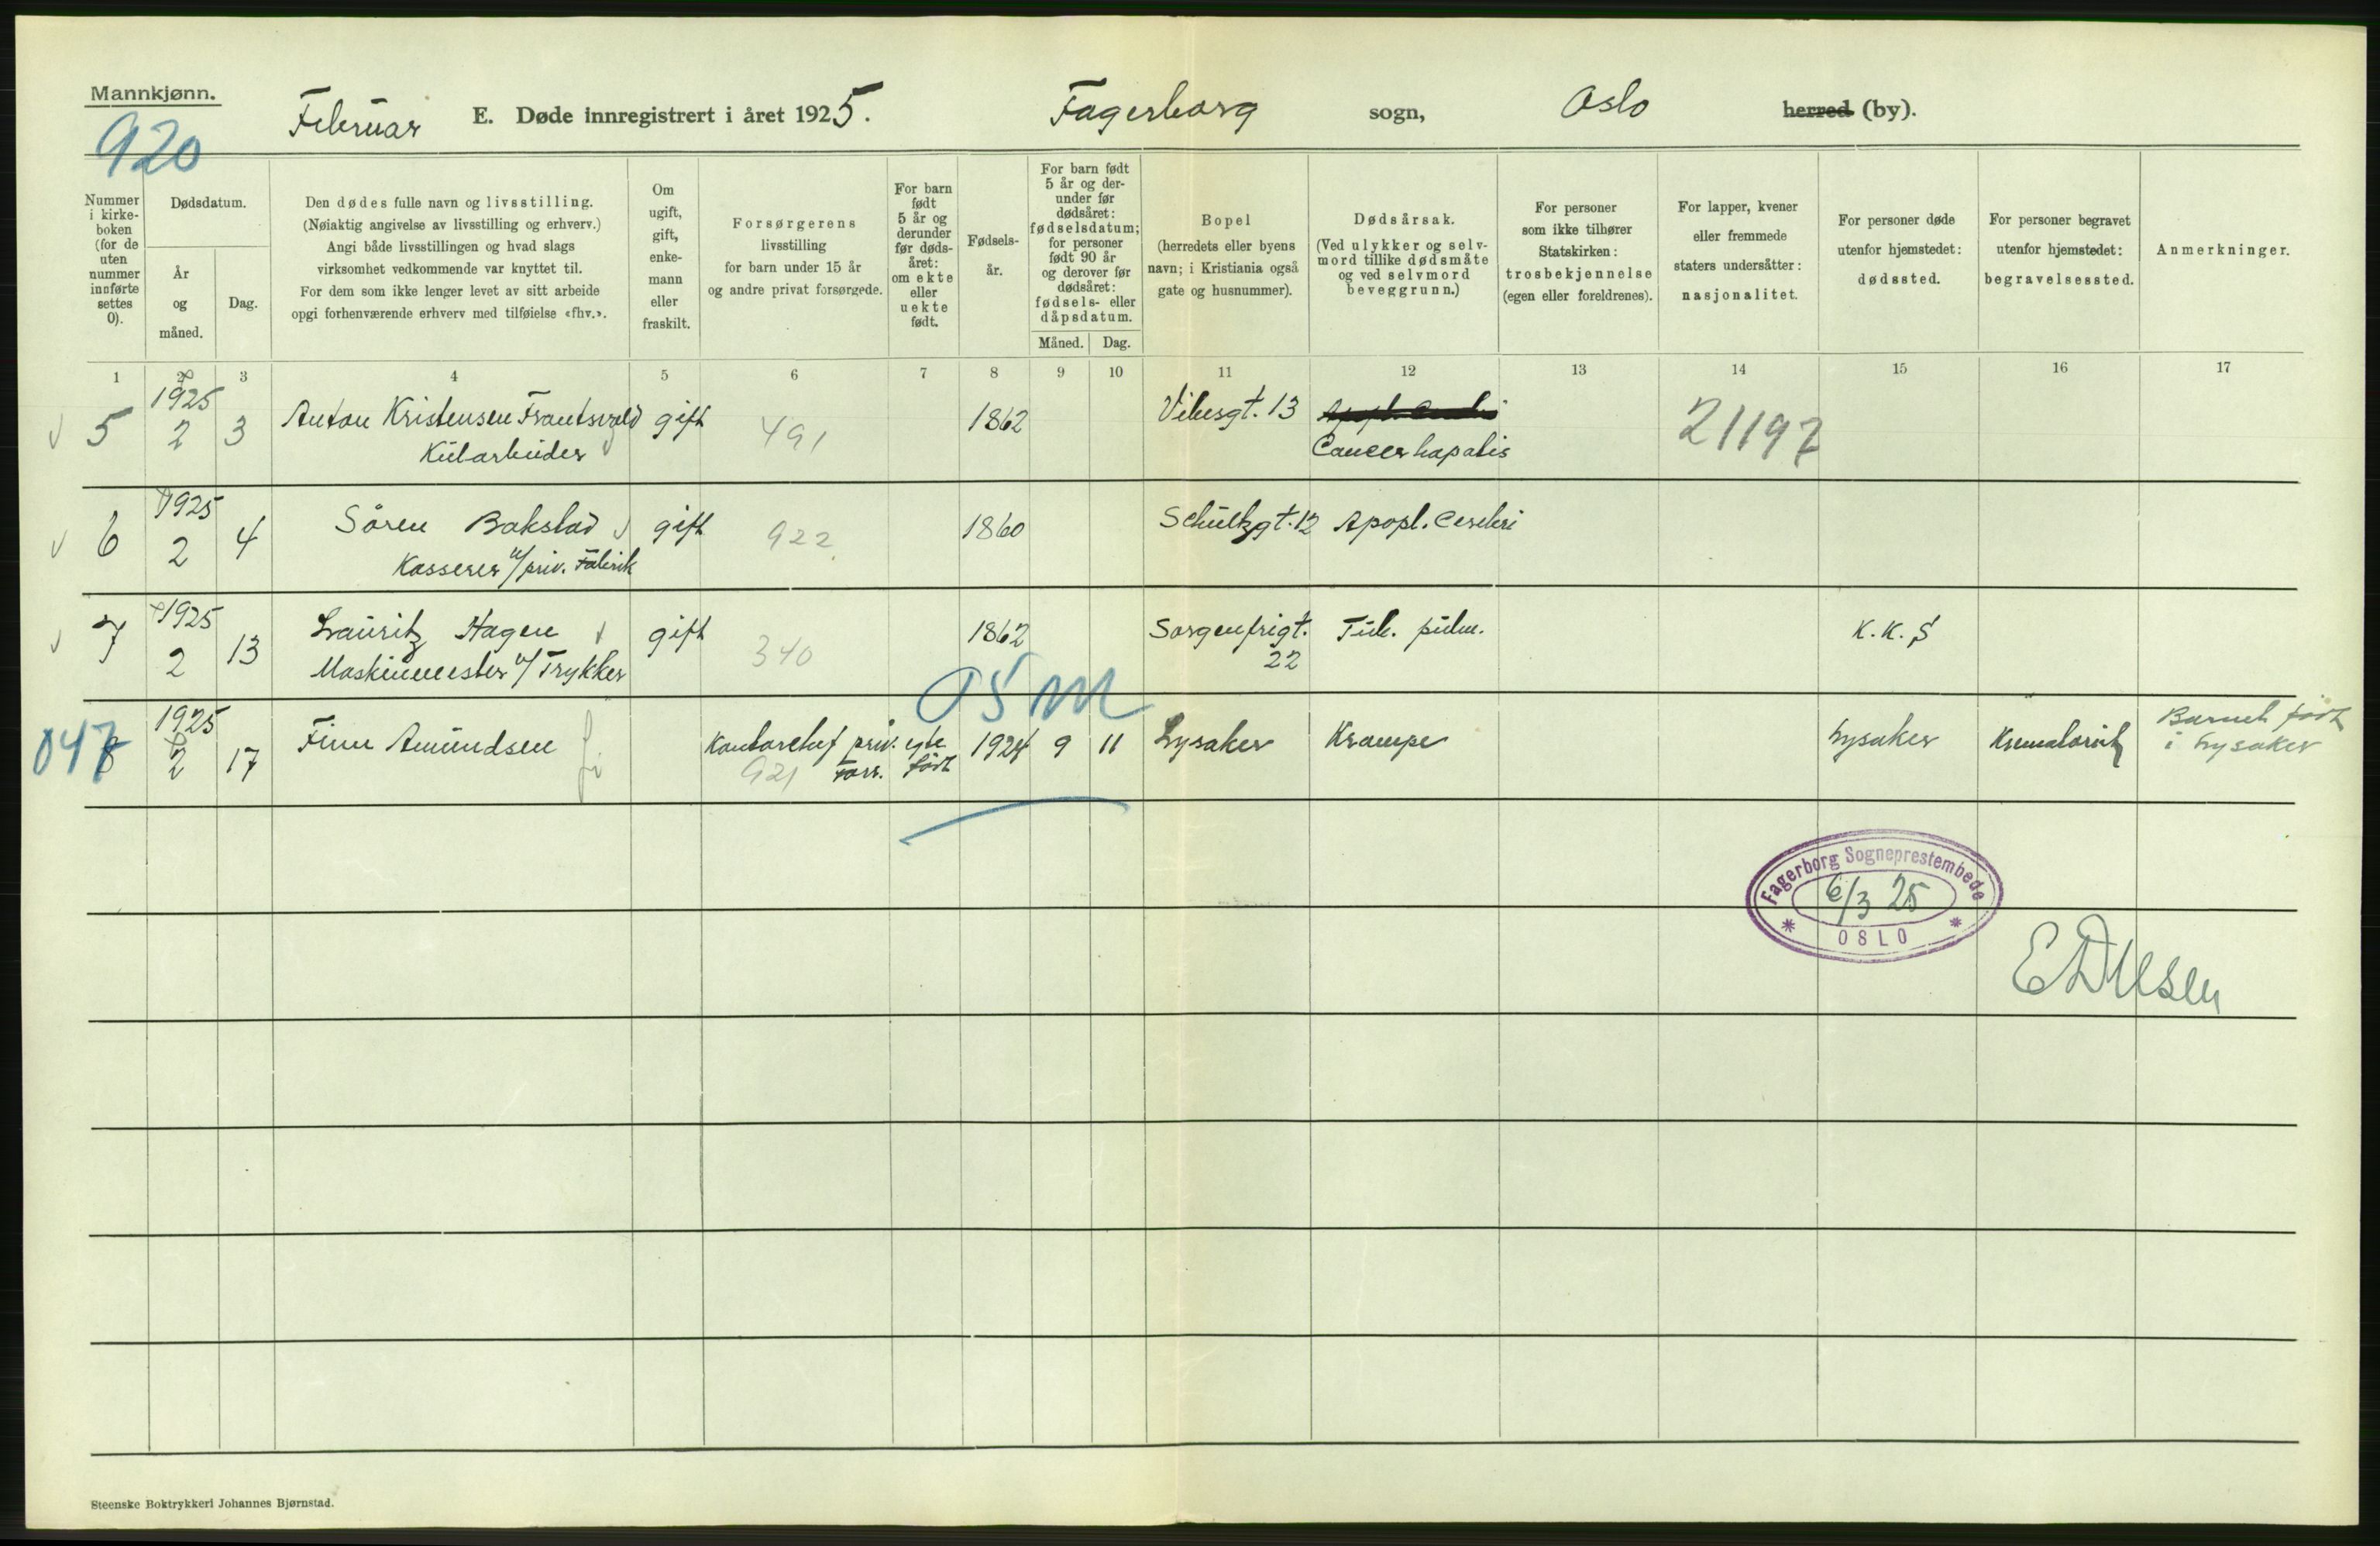 Mannkjønn.
920
Februar E. Døde innregistrert i året 1925. Fagerborg sogn, Oslo herred (by).
Nummer i kirke-boken (for de uten nummer innførte settes 0).
Dødsdatum.
År og måned.
Dag.
Den dødes fulle navn og livsstilling.
(Nøiaktig angivelse av livsstilling og erhverv.)
Angi både livsstillingen og hvad slags
virksomhet vedkommende var knyttet til.
For dem som ikke lenger levet av sitt arbeide
opgi forhenværende erhverv med tilføielse «fhv.».
Om ugift, gift, enke-mann eller fraskilt.
Forsørgerens
livsstilling
for barn under 15 år
og andre privat forsørgede.
For barn født 5 år og derunder før døds-året: om ekte eller uekte født.
Fødsels-år.
For barn født 5 år og der-under før dødsåret: fødselsdatum; for personer født 90 år og derover før dødsåret: fødsels- eller dåpsdatum.
Måned. Dag.
Bopel
(herredets eller byens
navn; i Kristiania også
gate og husnummer).
Dødsårsak.
(Ved ulykker og selv-
mord tillike dødsmåte
og ved selvmord
beveggrunn.)
For personer
som ikke tilhører
Statskirken:
trosbekjennelse
(egen eller foreldrenes).
For lapper, kvener
eller fremmede
staters undersåtter:
nasjonalitet.
For personer døde
utenfor hjemstedet:
dødssted.
For personer begravet
utenfor hjemstedet:
begravelsessted.
Anmerkninger.
1 2 3 4 5 6 7 8 9 10 11 12 13 14 15 16 17
5 1925 2 3 Anton Kristensen gift 491 1862 Vibesgt. 13
Cancer hepatis 21197
6 1925 2 4 Sören Bakstad gift 922 1860 Schultzgt. 12 Apopl. Cerebri
Kasserer v/priv. Fabrik
7 1925 2 13 Lauritz Hagen gift 340 1862 Sorgenfrigt. 22 Tub. pulm. K.K.S
Maskinmester v/ Trykker
05 M
047 8 1925 2 17 Finn Amundsen Kontorchef priv. egte 1924 9 11 Lysaker Krampe Lysaker Barnet født
921 forr. født i Lysaker
Fagerborg Sogneprestembede
6/3 25
OSLO
Steenske Boktrykkeri Johannes Bjørnstad.